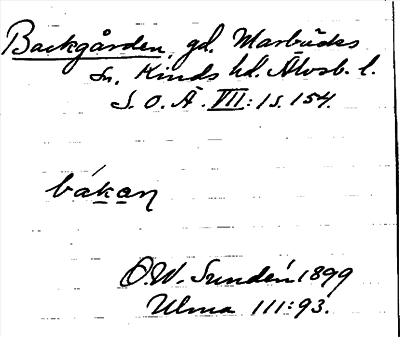 Backgården, gd. Marbäcks
sn. Kinds hd. Älvsb. l.
S. O. Ä. VII: 1 s. 154.
bákan
O.W. Sundén 1899
Ulma 111:93.